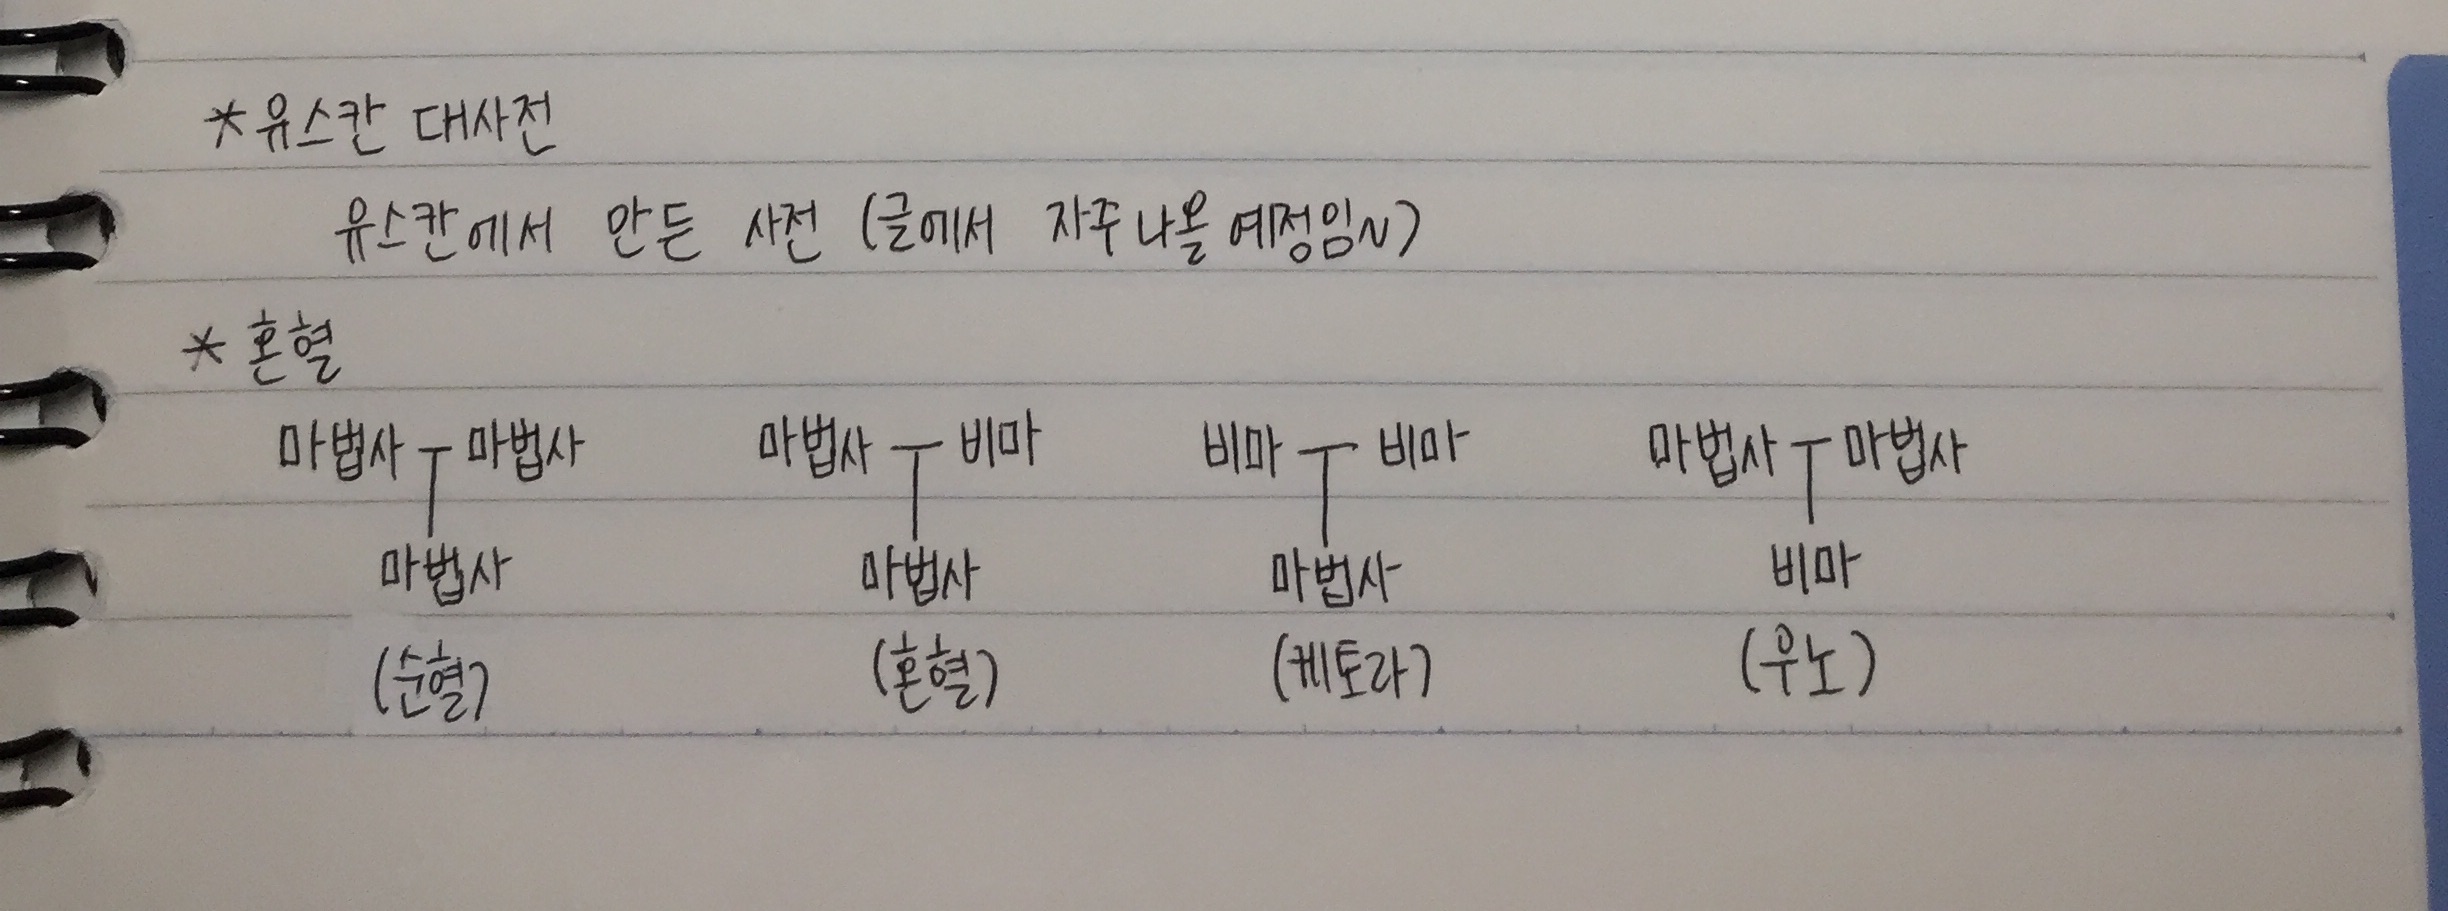 *유스칸 대사전
유스칸에서 만든 사전 (글에서 자주 나올 예정임~)
* 혼혈
마법사 ㅜ 마법사 마법사 ㅜ 비마 비마 ㅜ 비마 마법사 ㅜ 마법사
마법사 마법사 마법사 비마
(순혈) (혼혈) (케토라) (우노)